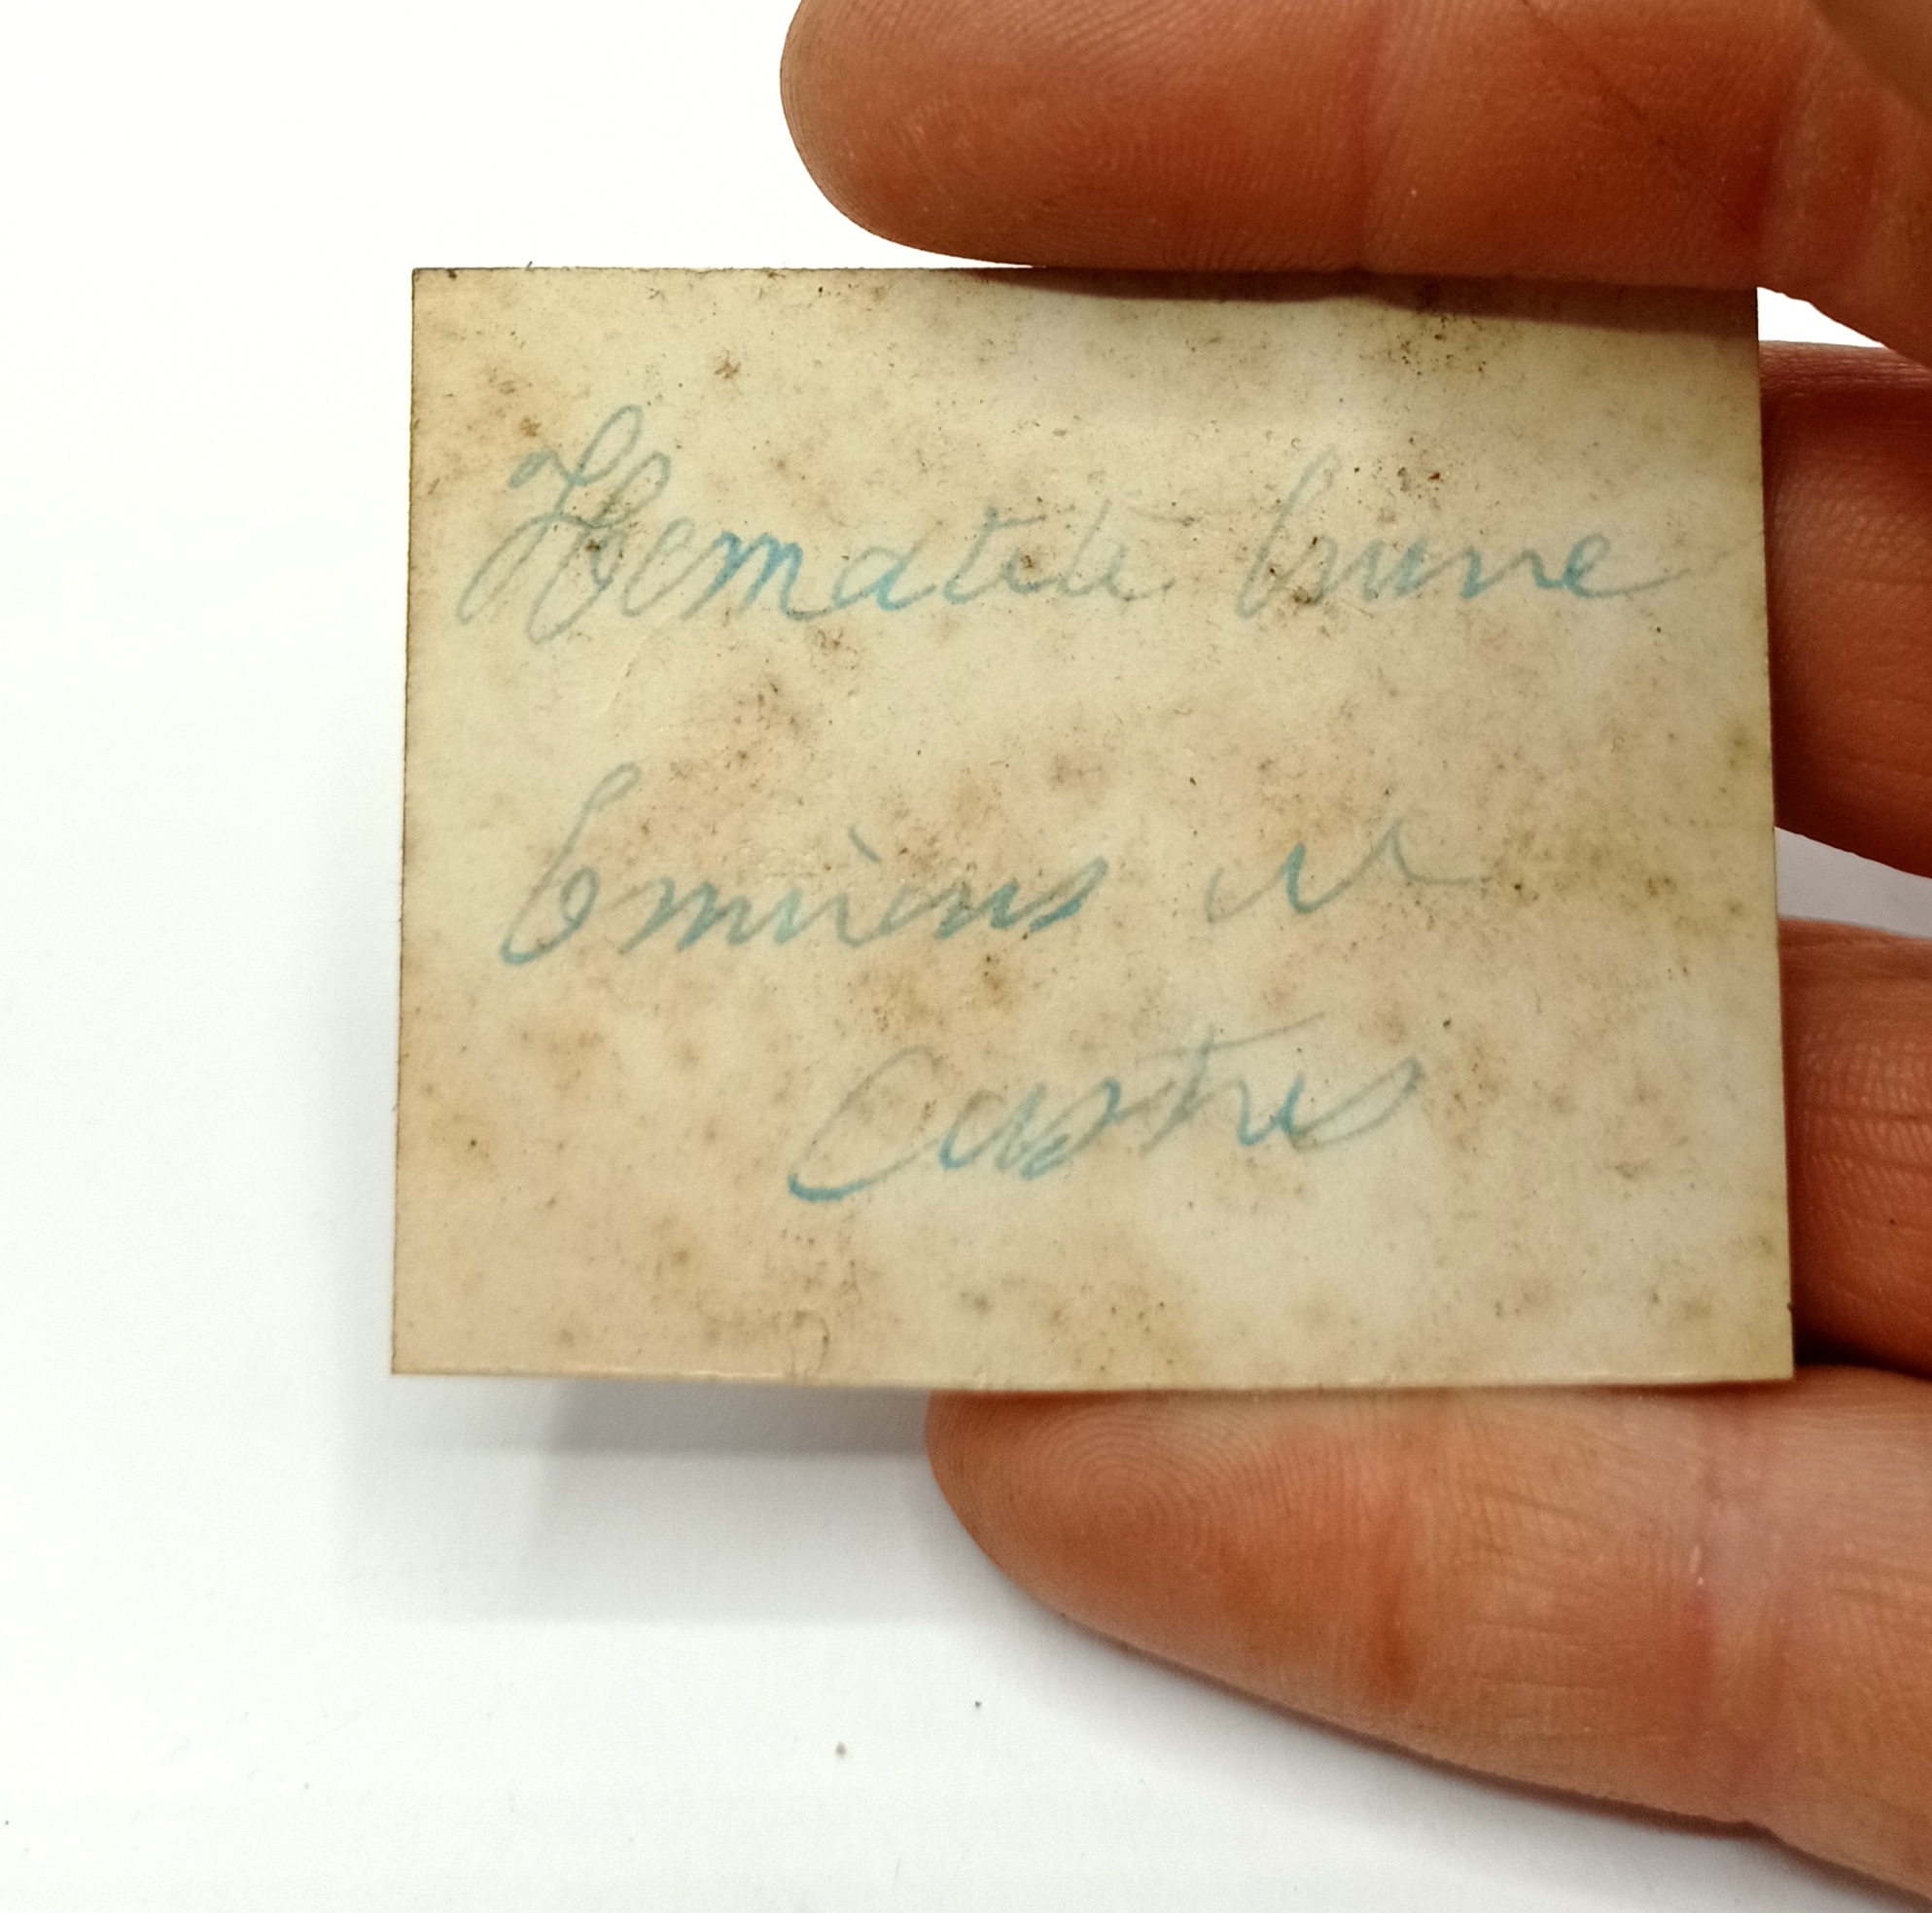 Hematite brune
Environs de
Castres